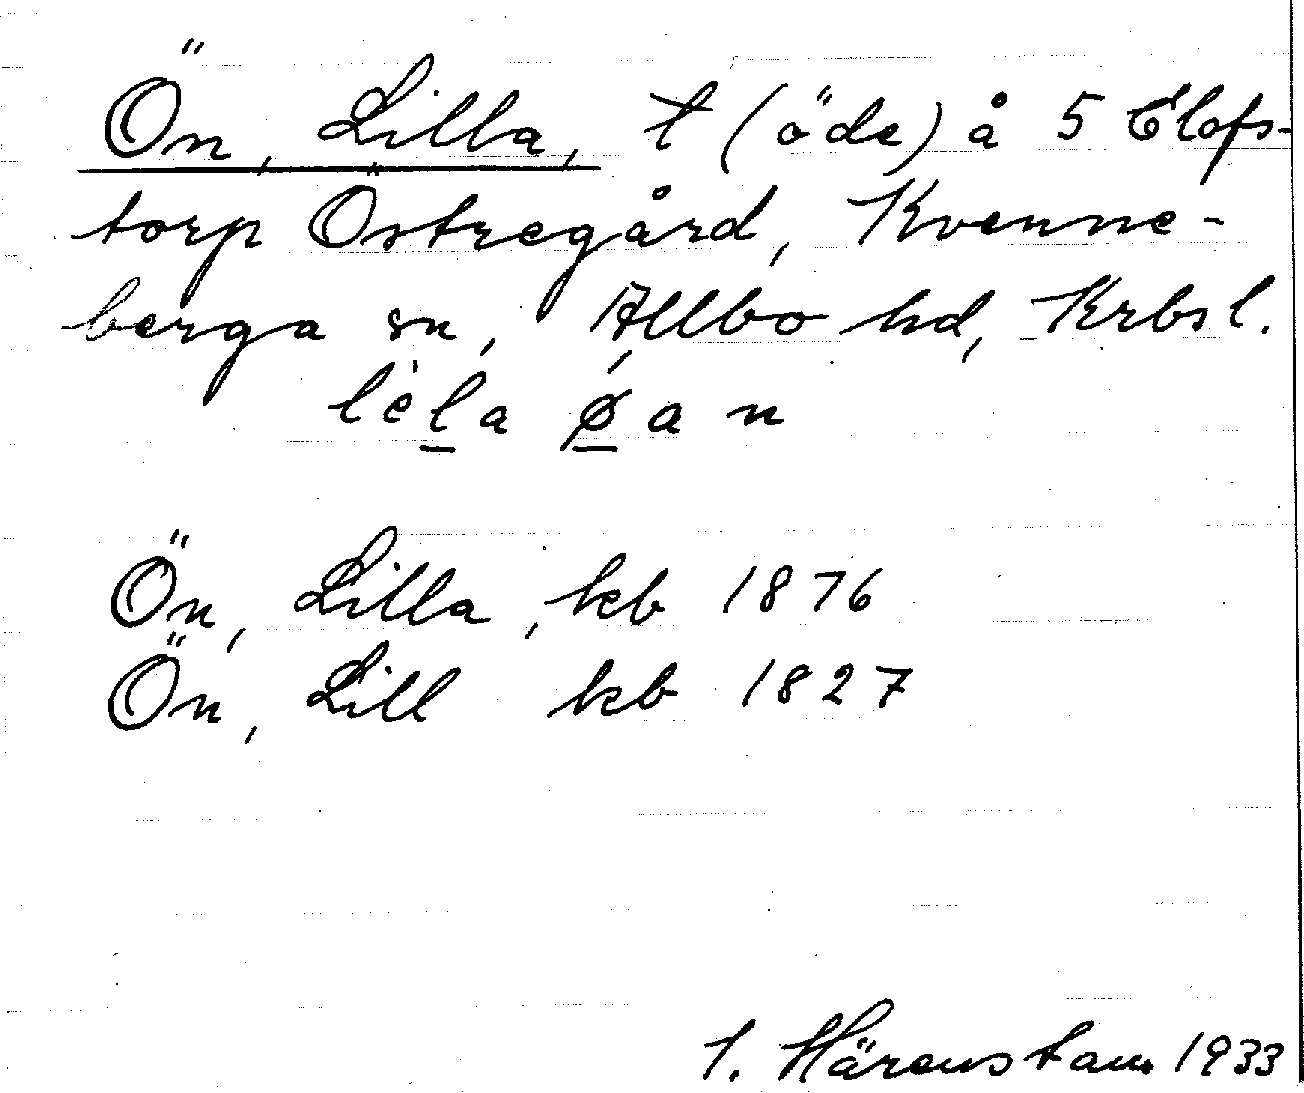 Ön, Lilla, t (öde) å 5 Elofs-
torp Östregård, Kvenne-
berga sn, Allbo hd, Krbsl.
lèl̲a ø̲an
Ön, Lilla, kb 1876
Ön, Lill kb 1827
I. Härenstam 1933